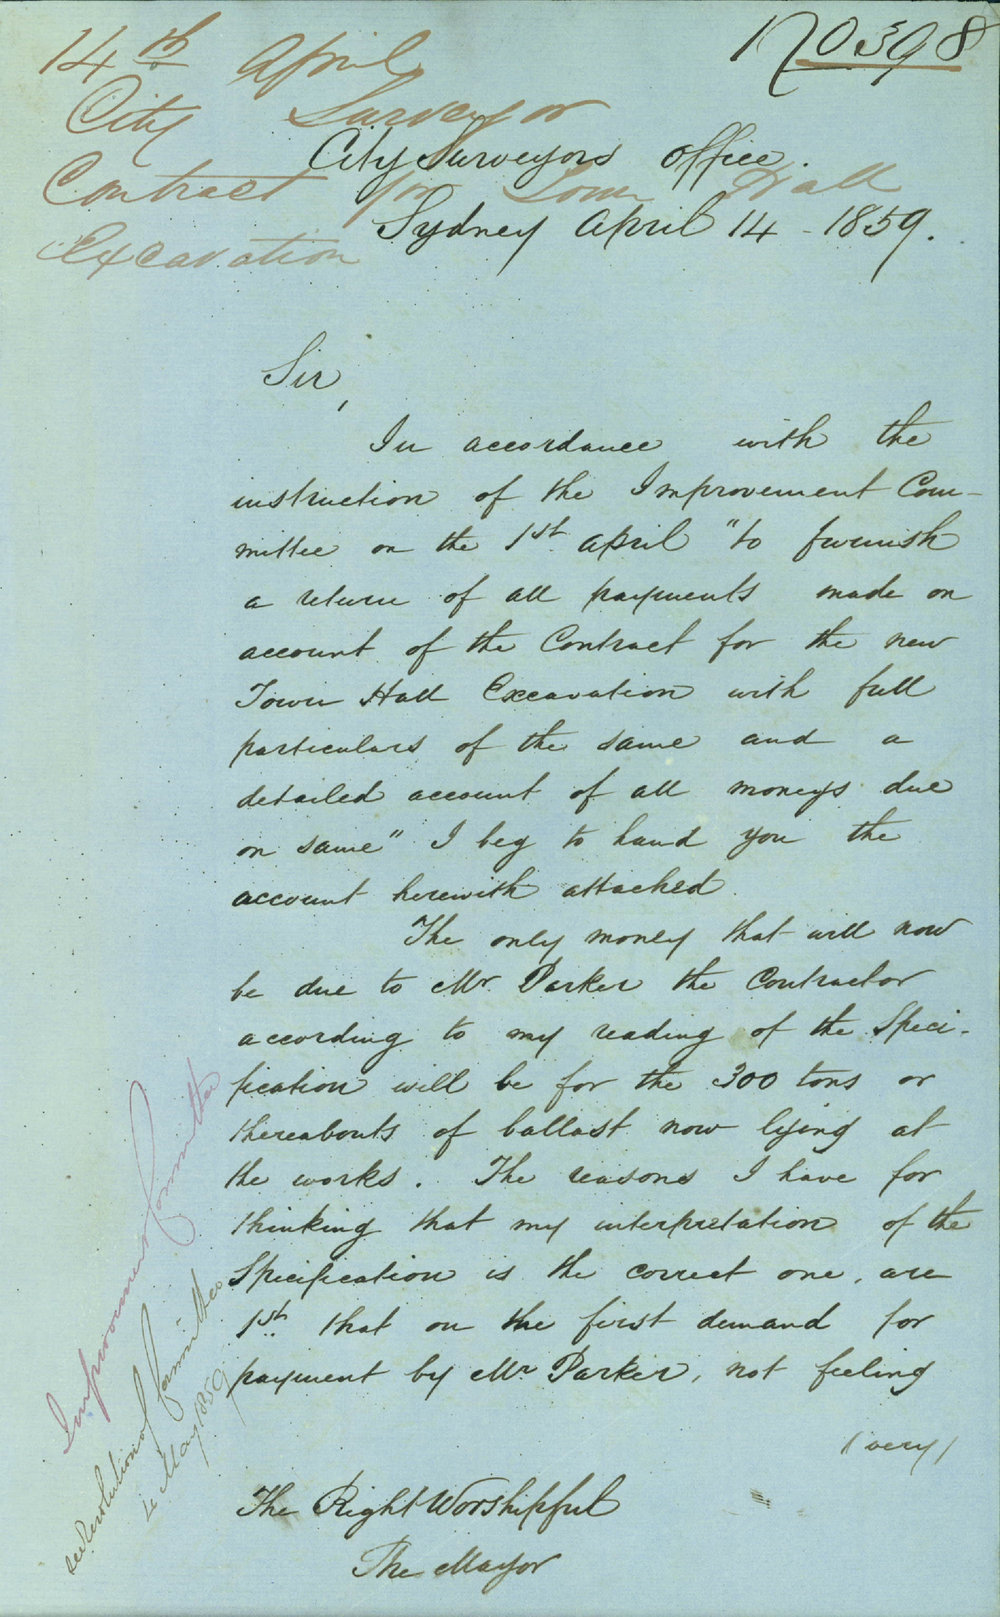 14th April
City Surveyor
Contract for Town Hall
Excavation
No 398
City Surveyors Office.
Sydney April 14 - 1859.
Sir,
In accordance with the
instruction of the Improvement Com-
mittee on the 1st April "to furnish
a return of all payments made on
account of the Contract for the new
Town Hall Excavation with full
particulars of the same and a
detailed account of all moneys due
on same" I beg to hand you the
account herewith attached.
The only money that will now
be due to Mr Parker the Contractor
according to my reading of the Speci-
fication will be for the 300 tons or
thereabouts of ballast now lying at
the works. The reasons I have for
thinking that my interpretation of the
Specification is the correct one, are
1st that on the first demand for
payment by Mr Parker, not feeling
(very)
The Right Worshipful
The Mayor
Improvement Committee
see Resolution of Committee
4 May 1859